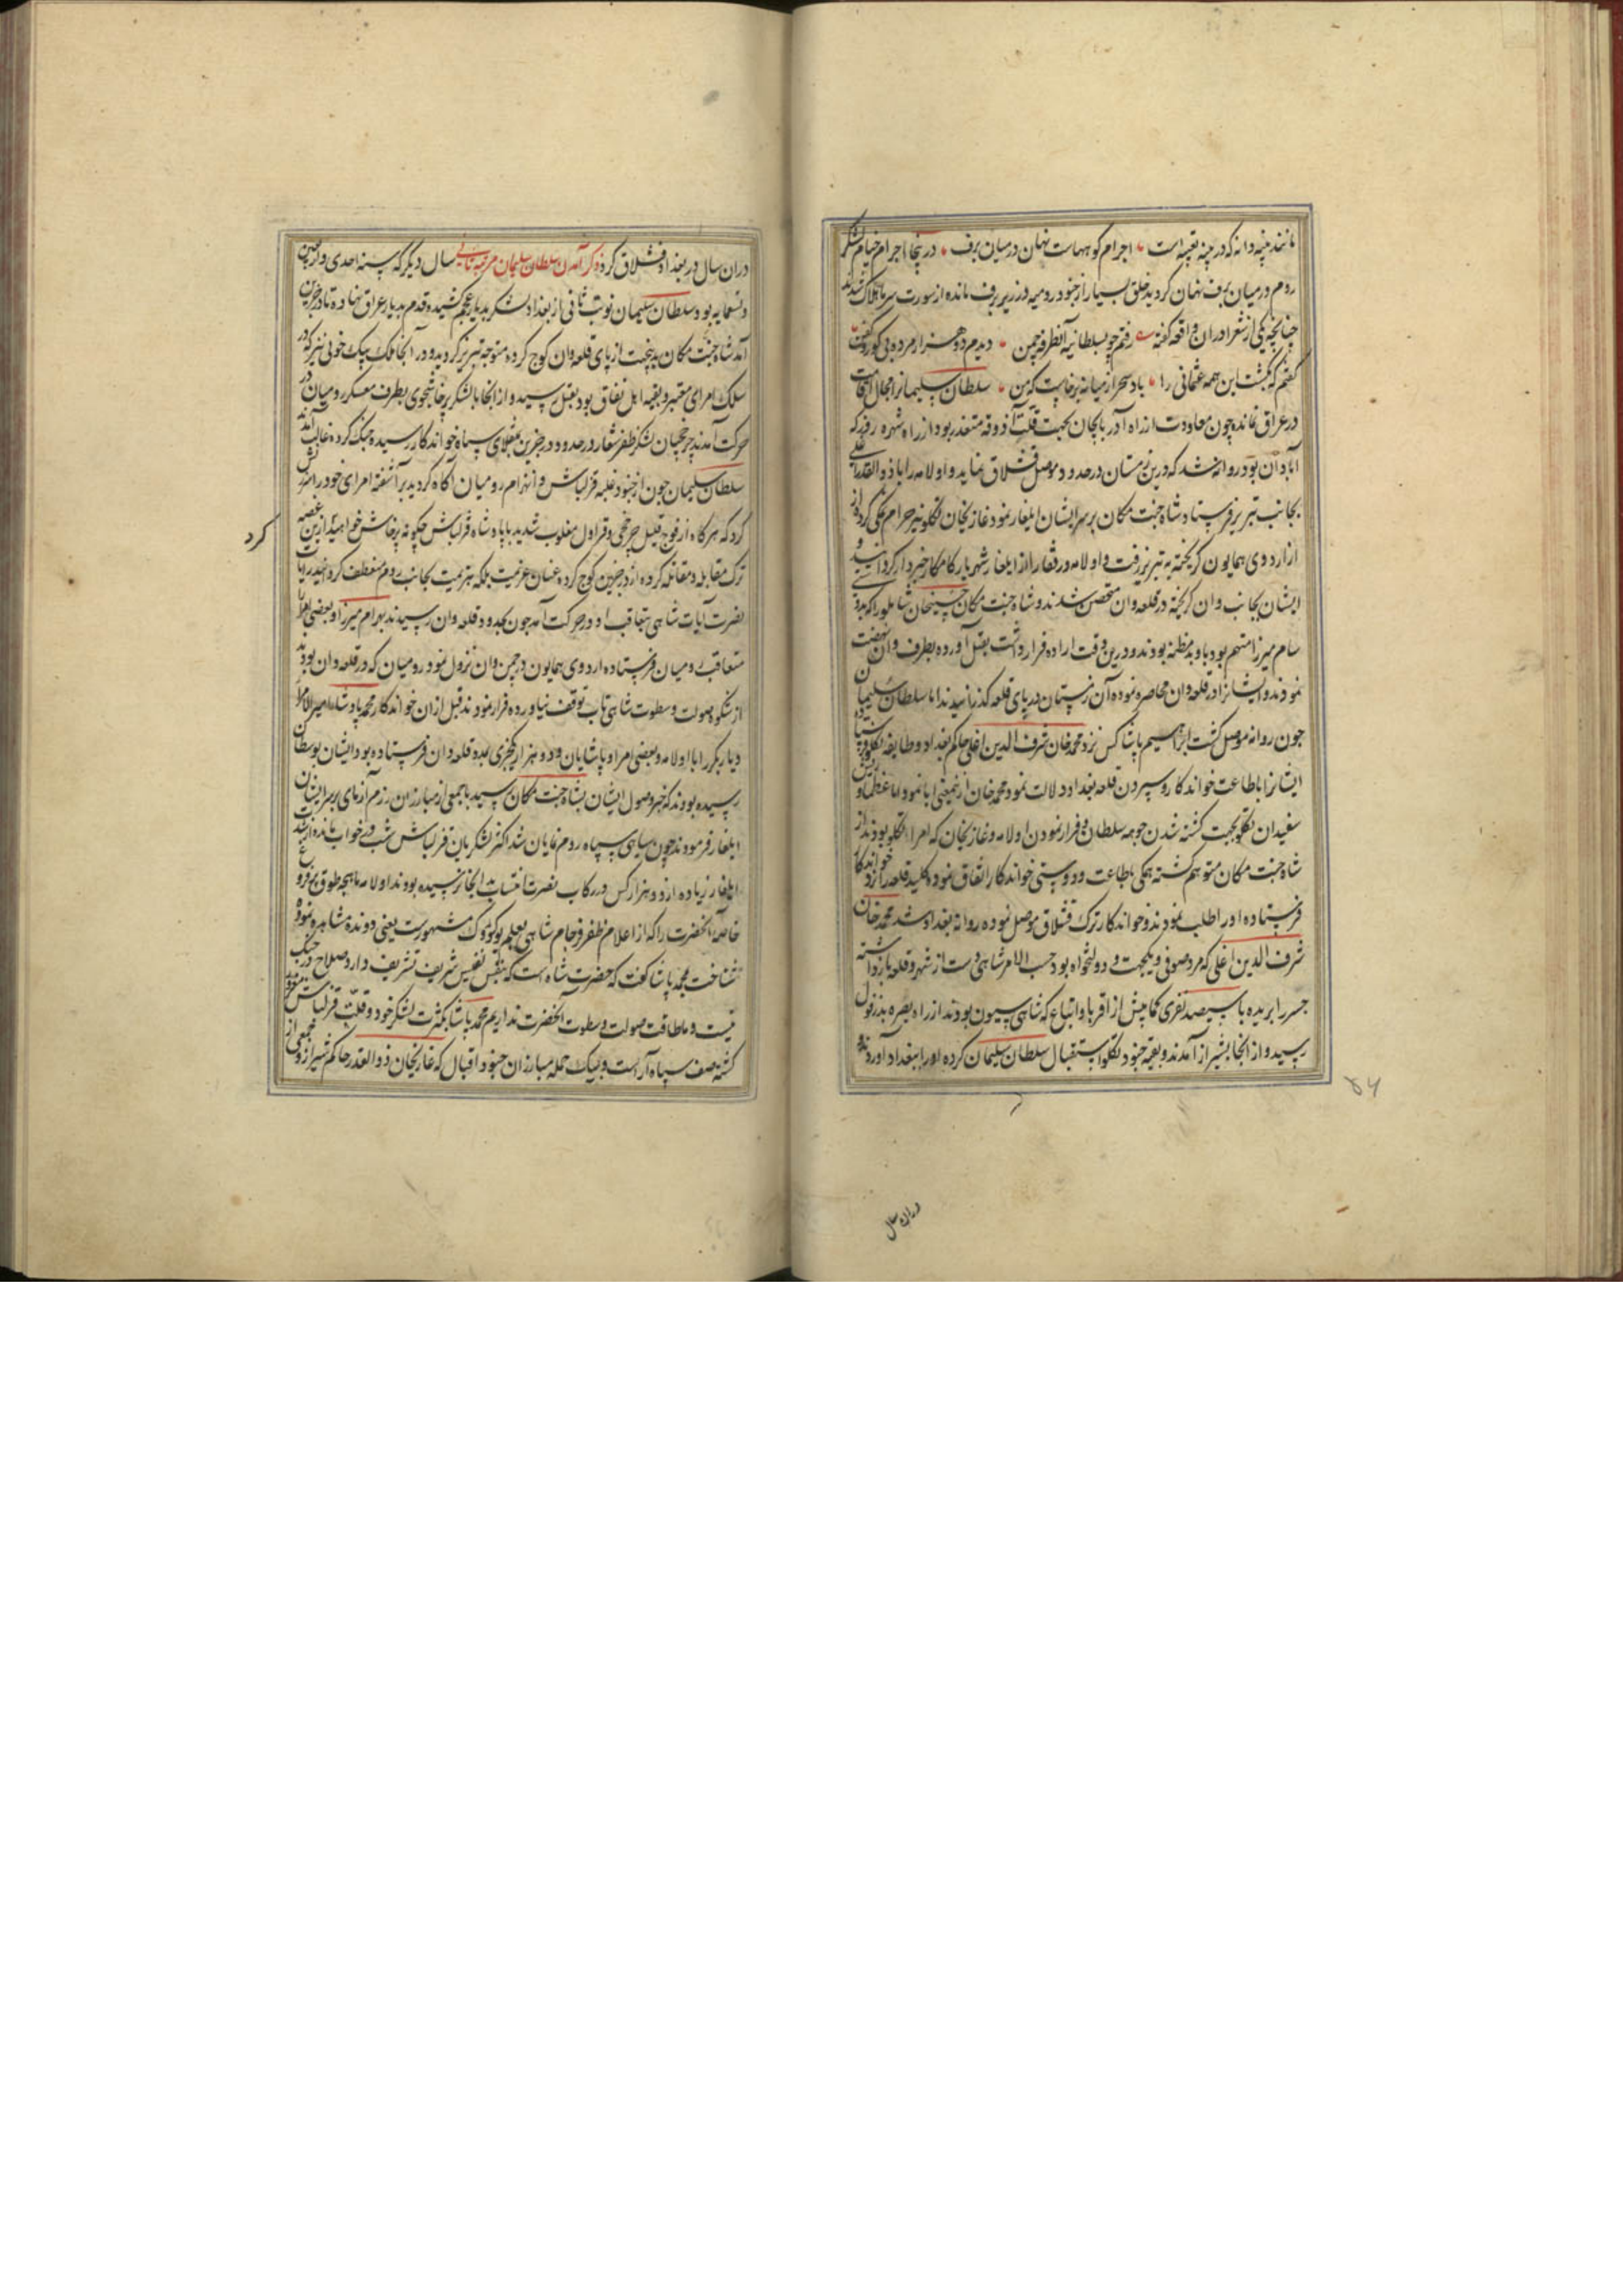 مانند پنبه دانه که در پنبه تعبیه است اجرام کوههاست نهان در میان برف در پنجا اجرام خیام لشکر
روم در میان برف نهان کردید خلق بسیار از جنود رومیه در زیر برف مانده از سورت سرما هلاک شدند
چنانچه یکی از شعرا در ان واقعه گفته رفتم چو بسلطانیه آنطرفه چمن دیدم دو هزار مرده بی کور و کفن
کفتم که بکشت این همه عثمانی را باد سحر از میانه برخاست که من سلطان سلیمانرا مجال اقامت
در عراق نمانده چون معاودت از راه آذربایجان بجهت قلت آذوقه متعذر بود از راه شهره زور که
آبادان بود روانه شد که درین زمستان در حدود موصل قشلاق نماید و اولامه را با ذوالقدر علی
بجانب تبریز فرستاد شاه جنت مکان بر سر ایشان ایلغار نمود غازیخان تکلو نیز حرام نمکی کرده از
اردوی همایون کریخته به تبریز رفت و اولامه و رفقا را از ایلغار شهریار کامکار خبردار کردانید و
ایشان بجانب وان کریخته در قلعه وان متحصن شدند و شاه جنت مکان حسینخان شاملو را که بدوستی
سام میرزا متهم بود باو بدمظنه بودند و درین وقت اراده فرار داشت بقتل آورده بطرف وان نهضت
نمودند و ایشانرا در قلعه وان محاصره نموده آن زمستان در پای قلعه کذرانیدند اما سلطان سلیمان
چون روانه موصل کشت ابراهیم پاشا کس نزد محمد خان شرف الدین اغلی حاکم بغداد و طایفه تکلو فرستاد
ایشانرا باطاعت خواندکار و سپردن قلعه بغداد دلالت نمود محمد خان ازینمعنی ابا نمود اما عظما و ریش
سفیدان تکلو بجهت کشته شدن جوهه سلطان و فرار نمودن اولامه و غازیخان که امراء تکلو بودند از
شاه جنت مکان متوهم کشته همکی باطاعت و دوستی خواندکار اتفاق نموده کلید قلعه را نزد خواندکار
فرستاده او را طلب نمودند و خواندکار ترک قشلاق موصل نموده روانه بغداد شد محمد خان
شرف الدین اغلی که مرد صوفی و یکجهت و دولتخواه بود حسب الامر شاهی دست از شهر و قلعه باز داشته
جسر را بریده با سیصد نفری کمابیش از اقربا و اتباع که شاهی سیون بودند از راه بصره بدزفول
رسید و از انجا بشیراز آمدند و بقیه جنود تکلو استقبال سلطان سلیمان کرده او را ببغداد آوردند و
۵۴
دران سال
دران سال در بغداد قشلاق کرد ذکر آمدن سلطان سلیمان مرتبه ثانی سال دیکر که سنه احدی و اربعین
و تسعمایه بود سلطان سلیمان نوبت ثانی از بغداد لشکر بدیار عجم کشیده قدم بدیار عراق نهاده تا درجزین
آمد شاه جنت مکان بدین جهت از پای قلعه وان کوچ کرده متوجه تبریز کردید و در آنجا ملک بیک خوئی نیز که در
سلک امرای معتبر و بقیه اهل نفاق بود بقتل رسید و از انجا با لشکر پرخاشجوی بطرف معسکر رومیان در
حرکت آمدند چرخچیان لشکر ظفر شعار در حدود درجزین بمنقلای سپاه خواندکار رسیده جنک کرده غالب آمدند
سلطان سلیمان چون از جنود غلبه قزلباش و انهزام رومیان آکاه کردید بر آشفته امرای خود را سرزنش
کرد که هرکاه از فوج قلیل چرخچی و قراول مغلوب شدید با پادشاه قزلباش چکونه پرخاش خواهید از این غصه
کرد
ترک مقابله و مقاتله کرده از درجزین کوچ کرده عنان عزیمت بلکه هزیمت بجانب روم منعطف کردانید رایات
نصرت آیات شاهی بتعاقب او در حرکت آمد چون بحدود قلعه وان رسیدند بهرام میرزا و بعضی امرا را
متعاقب رومیان فرستاده اردوی همایون در چمن وان نزول نمود رومیان که در قلعه وان بودند
از شکوه صولت و سطوت شاهی تاب توقف نیاورده فرار نمودند قبل از ان خواندکار محمد پاشا امیرالامرا
دیاربکر را با اولامه و بعضی امرا و پاشایان و دو هزار ینکچری بمدد قلعه وان فرستاده بود ایشان بوسطان
رسیده بودند که خبر وصول ایشان بشاه جنت مکان رسید با جمعی از مبارزان رزم آزمای بر سر ایشان
ایلغار فرمودند چون سیاهی سپاه روم نمایان شد اکثر لشکریان قزلباش شب در خواب مانده از شدت
ایلغار زیاده از دو هزار کس در رکاب نصرت انتساب بدانجا نرسیده بودند اولامه ماهچه طوق بر فروغ
خاصه آنحضرت را که از اعلام ظفر فرجام شاهی بعلم یوکروک مشهورست یعنی دونده مشاهده نموده
شناخت بمحمد پاشا کفت که حضرت شاه است که بنفس نفیس شریف تشریف دارد صلاح در جنک
نیست و ما طاقت صولت و سطوت آنحضرت نداریم محمد پاشا بکثرت لشکر خود و قلت قزلباش مغرور
کشته صف سپاه آراست و بیک حمله مبارزان جنود اقبال که غازیخان ذوالقدر حاکم شیراز و جمعی از